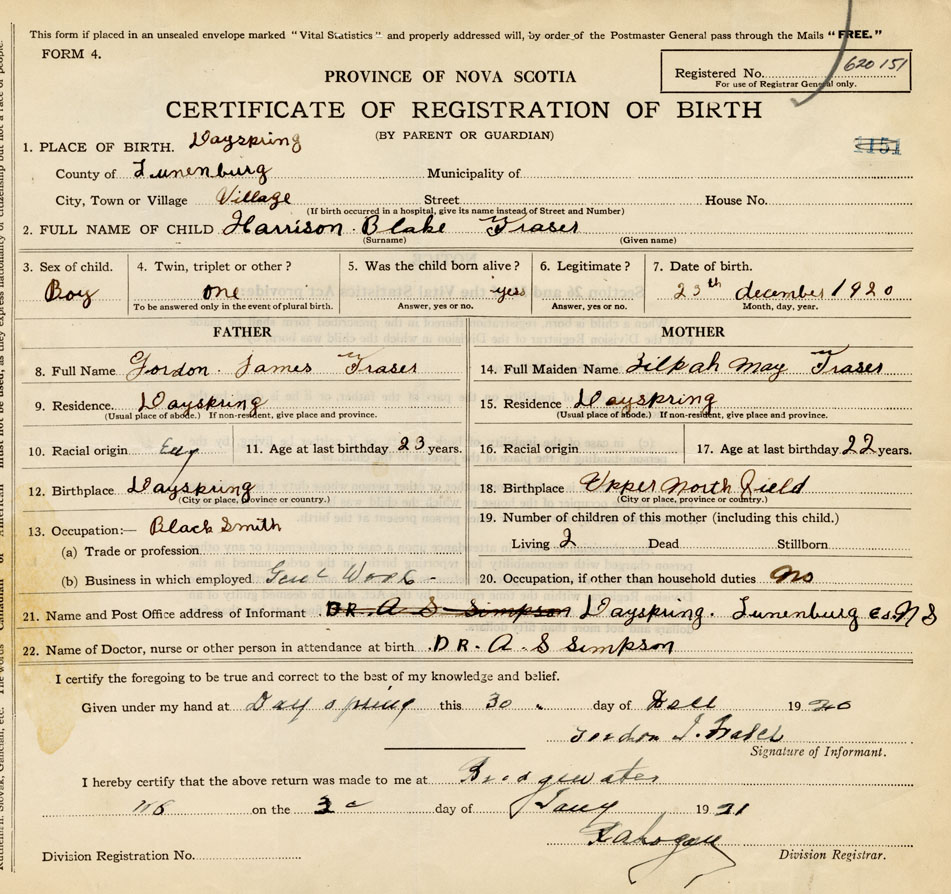 This form if placed in an unsealed envelope marked "Vital Statistics" and properly addressed will, by order of the Postmaster General pass through the Mails "FREE."
FORM 4.
Registered No. 620151
For use of Registrar General only.
PROVINCE OF NOVA SCOTIA
CERTIFICATE OF REGISTRATION OF BIRTH
(BY PARENT OR GUARDIAN)
1. PLACE OF BIRTH. Dayspring
County of Lunenburg Municipality of
City, Town or Village Village Street House No.
(If birth occurred in a hospital, give its name instead of Street and Number)
2. FULL NAME OF CHILD Harrison Blake Fraser
(Surname) (Given name)
3. Sex of child. 4. Twin, triplet or other? 5. Was the child born alive? 6. Legitimate? 7. Date of birth.
Boy one yess 23th december 1920
To be answered only in the event of plural birth. Answer, yes or no. Answer, yes or no. Month, day, year.
FATHER
8. Full Name Gordon James Fraser
9. Residence. Dayspring
(Usual place of abode.) If non-resident, give place and province.
10. Racial origin 11. Age at last birthday 23 years.
12. Birthplace Dayspring
(City or place, province or country.)
13. Occupation:— Black Smith
(a) Trade or profession
(b) Business in which employed Genl Work
MOTHER
14. Full Maiden Name Zilpah may Fraser
15. Residence Dayspring
(Usual place of abode.) If non-resident, give place and province.
16. Racial origin 17. Age at last birthday 22 years.
18. Birthplace Upper North field
(City or place, province or country.)
19. Number of children of this mother (including this child.)
Living 2 Dead Stillborn
20. Occupation, if other than household duties no
21. Name and Post Office address of Informant DR. A S Simpson Dayspring. Lunenburg co. N S
22. Name of Doctor, nurse or other person in attendance at birth DR. A S Simpson
I certify the foregoing to be true and correct to the best of my knowledge and belief.
Given under my hand at Dayspring this 30 day of Dec 1920
Gordon J. Fraser
Signature of Informant.
I hereby certify that the above return was made to me at Bridgwater
on the day of Jany 1921
Division Registration No. Division Registrar.